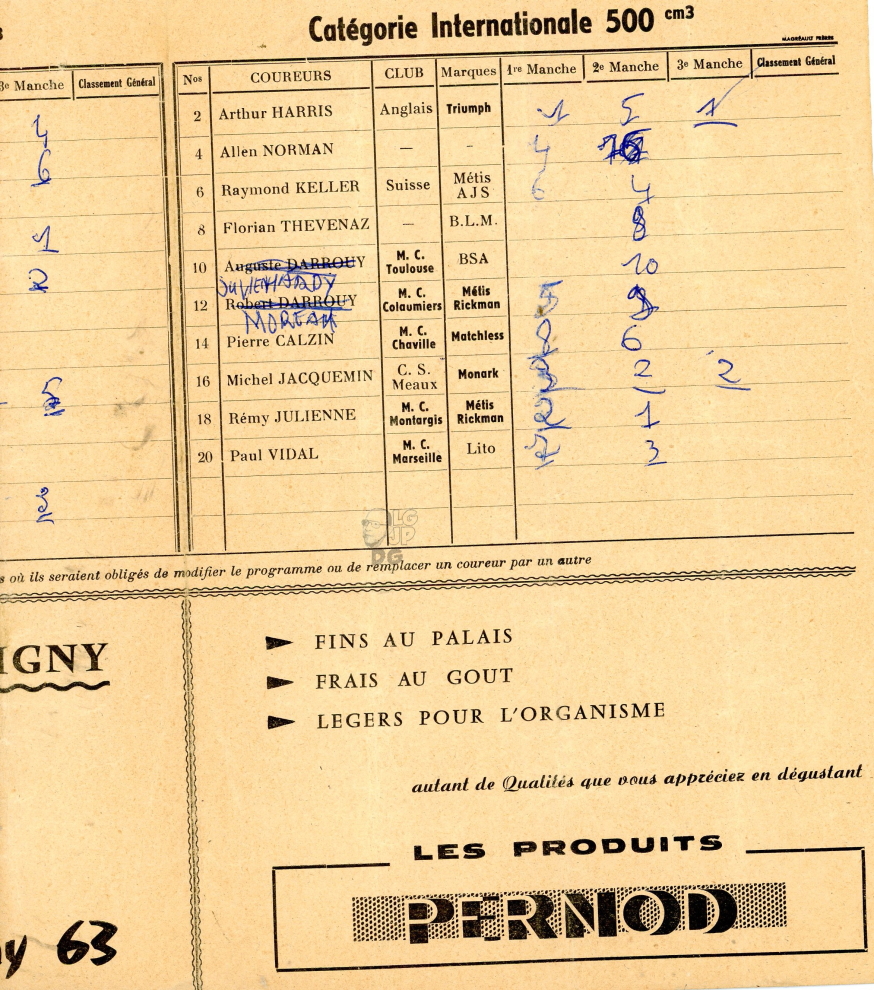 Catégorie Internationale 500 cm3
MAGRÉAULT FRÈRES
3e Manche Classement Général
Nos COUREURS CLUB Marques 1re Manche 2e Manche 3e Manche Classement Général
2 Arthur HARRIS Anglais Triumph 1 5 1
4 Allen NORMAN — - 4
6 Raymond KELLER Suisse Métis AJS 6 4
8 Florian THEVENAZ — B.L.M. 8
10 Auguste DARROUY M. C. Toulouse BSA 10
12 Robert DARROUY M. C. Colaumiers Métis Rickman
MOREAU
14 Pierre CALZIN M. C. Chaville Matchless 6
16 Michel JACQUEMIN C. S. Meaux Monark 2 2
18 Rémy JULIENNE M. C. Montargis Métis Rickman 1
20 Paul VIDAL M. C. Marseille Lito 3
4
6
1
2
5
LG
JP
DG
s où ils seraient obligés de modifier le programme ou de remplacer un coureur par un autre
IGNY
FINS AU PALAIS
FRAIS AU GOUT
LEGERS POUR L'ORGANISME
autant de Qualités que vous appréciez en dégustant
LES PRODUITS
PERNOD
y 63